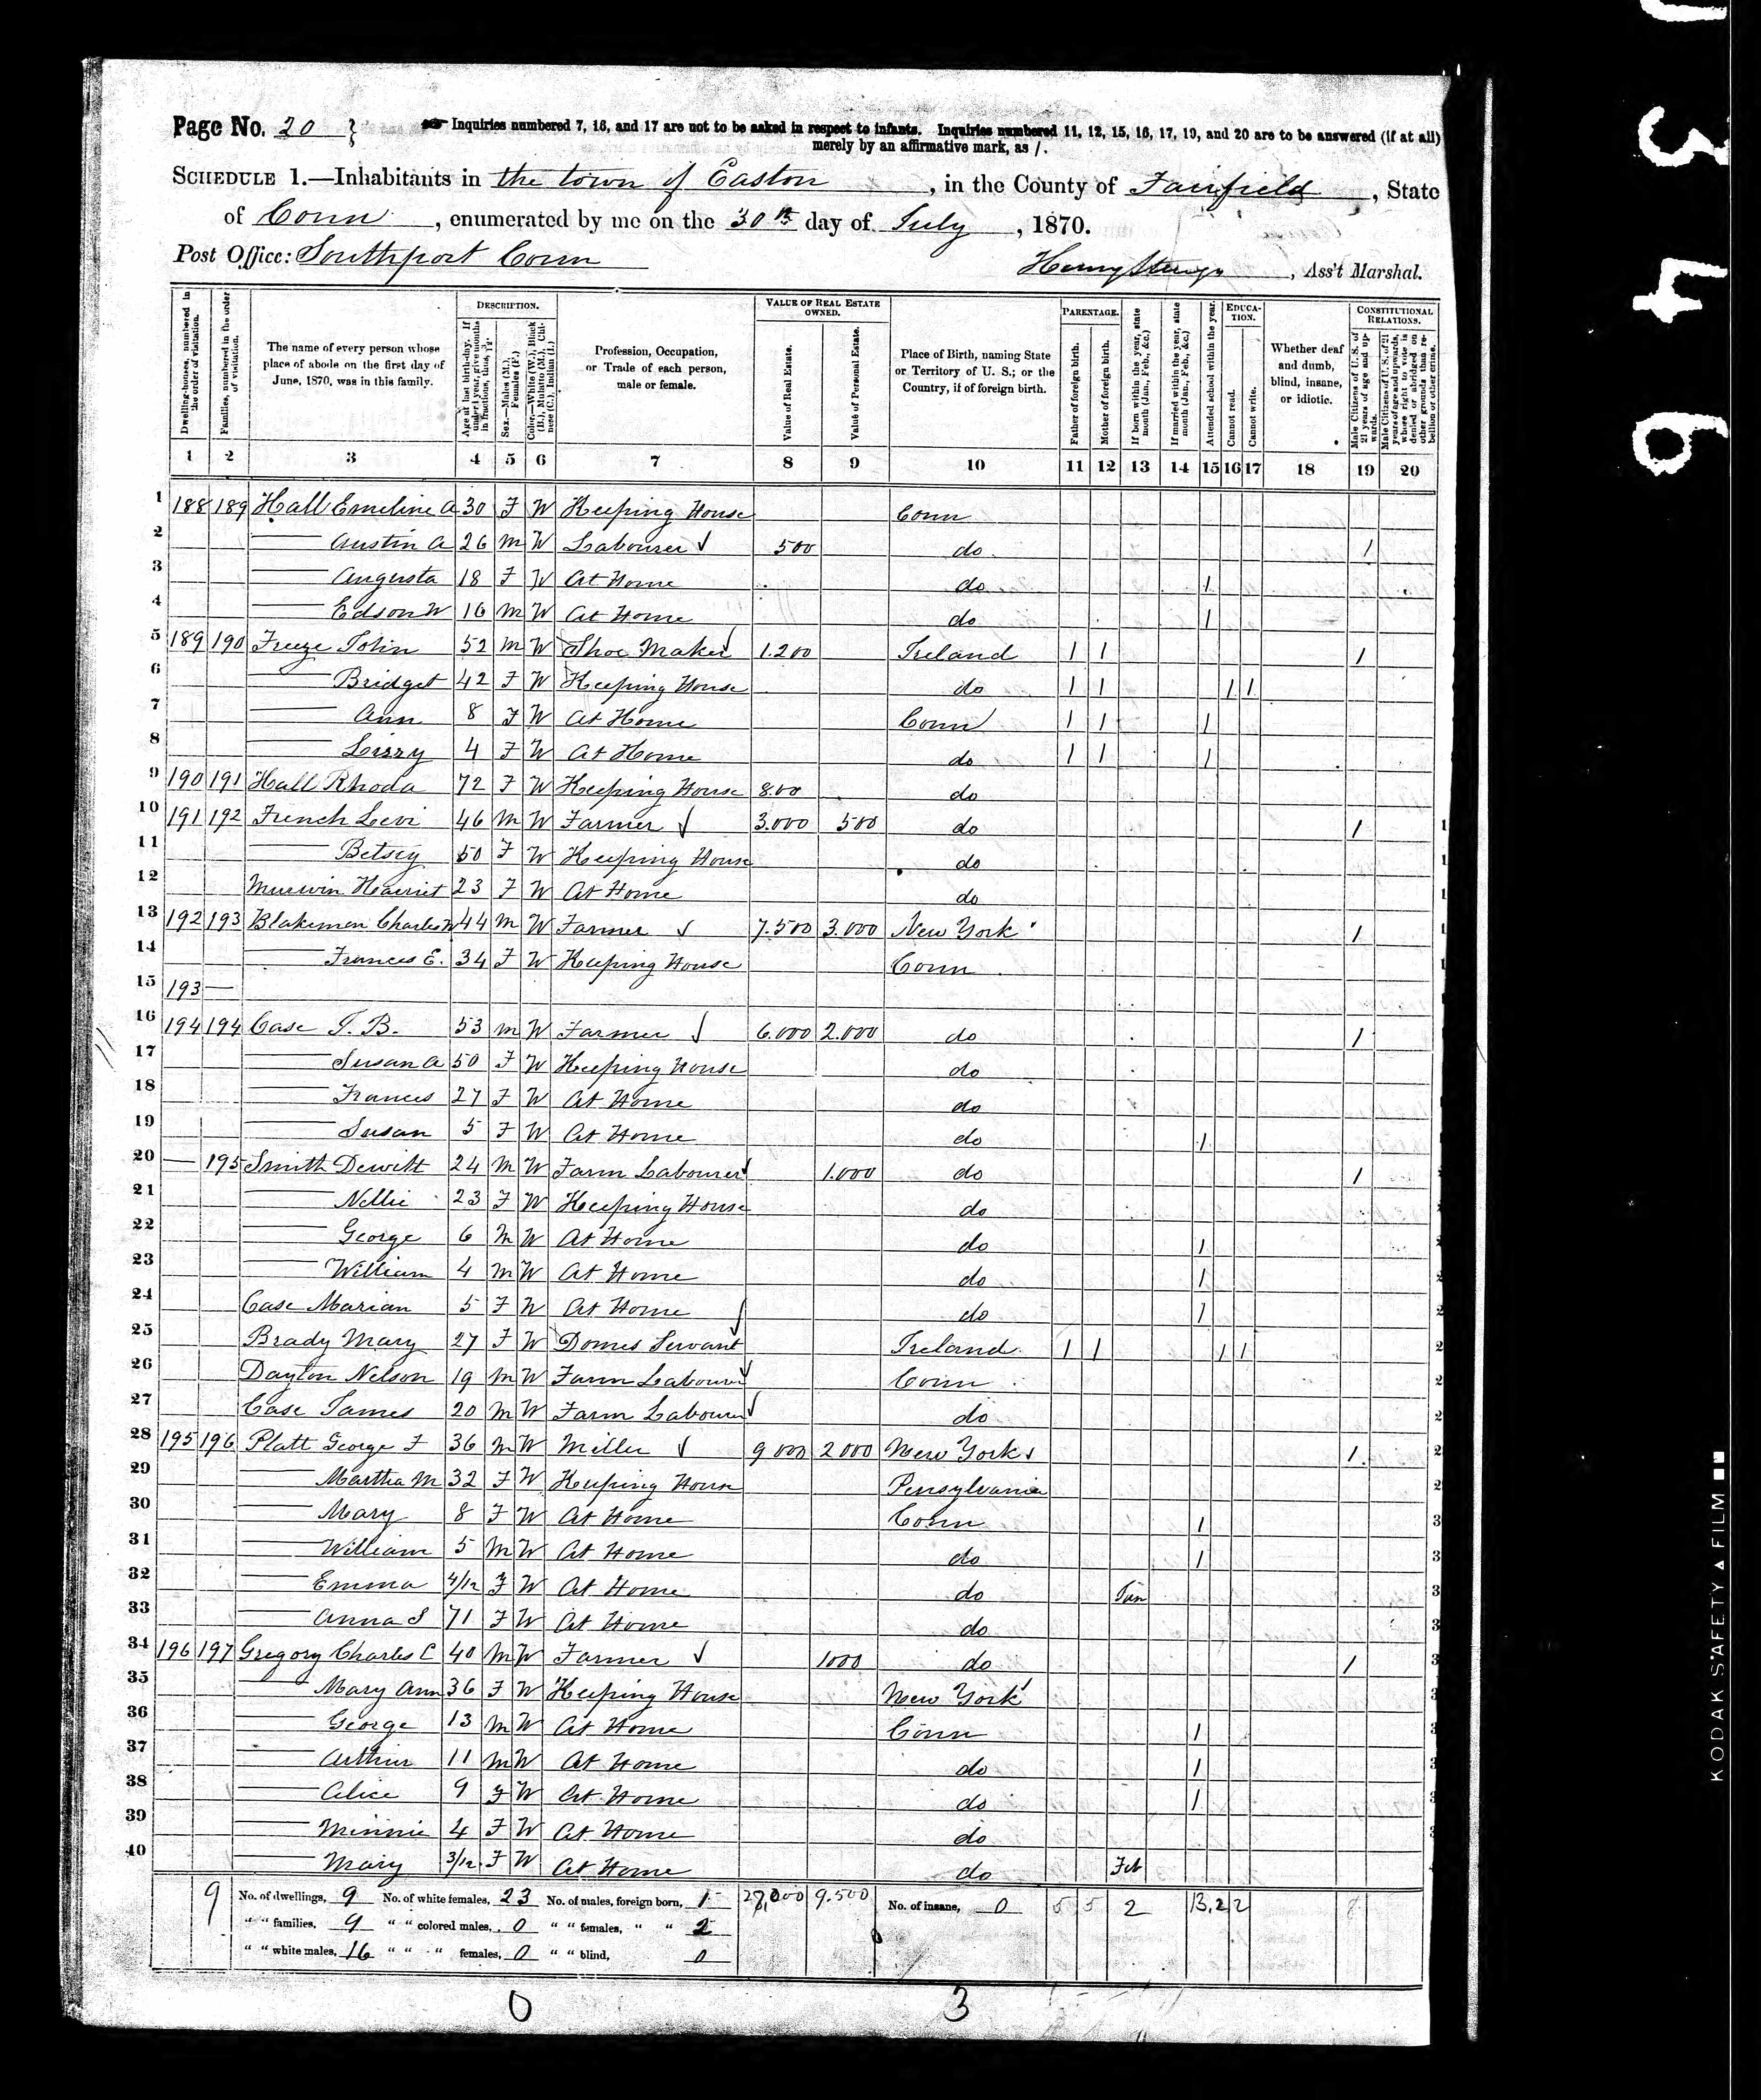 Page No. 20 }
Inquiries numbered 7, 16, and 17 are not to be asked in respect to infants. Inquiries numbered 11, 12, 15, 16, 17, 19, and 20 are to be answered (if at all)
merely by an affirmative mark, as /.
SCHEDULE 1.—Inhabitants in the town of Easton, in the County of Fairfield, State
of Conn, enumerated by me on the 30th day of July, 1870.
Post Office: Southport Conn
Henry Sturges, Ass't Marshal.
Dwelling-houses, numbered in the order of visitation.
Families, numbered in the order of visitation.
The name of every person whose place of abode on the first day of June, 1870, was in this family.
DESCRIPTION.
Age at last birth-day. If under 1 year, give months in fractions, thus, 3/12.
Sex.—Males (M.), Females (F.)
Color.—White (W.), Black (B.), Mulatto (M.), Chinese (C.), Indian (I.)
Profession, Occupation, or Trade of each person, male or female.
VALUE OF REAL ESTATE OWNED.
Value of Real Estate.
Value of Personal Estate.
Place of Birth, naming State or Territory of U. S.; or the Country, if of foreign birth.
PARENTAGE.
Father of foreign birth.
Mother of foreign birth.
If born within the year, state month (Jan., Feb., &c.)
If married within the year, state month (Jan., Feb., &c.)
Attended school within the year.
EDUCATION.
Cannot read.
Cannot write.
Whether deaf and dumb, blind, insane, or idiotic.
CONSTITUTIONAL RELATIONS.
Male Citizens of U. S. of 21 years of age and upwards.
Male Citizens of U. S. of 21 years of age and upwards, whose right to vote is denied or abridged on other grounds than rebellion or other crime.
1 2 3 4 5 6 7 8 9 10 11 12 13 14 15 16 17 18 19 20
1 188 189 Hall Emeline A 30 F W Keeping House Conn
2 —— Austin A 26 M W Labourer ✓ 500 do 1
3 —— Augusta 18 F W At Home do 1
4 —— Edson W 16 M W At Home do 1
5 189 190 Freeze John 52 M W Shoe Maker ✓ 1.200 Ireland 1 1 1
6 —— Bridget 42 F W Keeping House do 1 1 1 1
7 —— Ann 8 F W At Home Conn 1 1 1
8 —— Lizzy 4 F W At Home do 1 1 1
9 190 191 Hall Rhoda 72 F W Keeping House 800 do
10 191 192 French Levi 46 M W Farmer ✓ 3.000 500 do 1
11 —— Betsey 50 F W Keeping House do
12 Murwin Harriet 23 F W At Home do
13 192 193 Blakeman Charles W 44 M W Farmer ✓ 7.500 3.000 New York 1
14 —— Frances E. 34 F W Keeping House Conn
15 193 —
16 194 194 Case T. B. 53 M W Farmer ✓ 6.000 2.000 do 1
17 —— Susan A 50 F W Keeping House do
18 —— Frances 27 F W At Home do
19 —— Susan 5 F W At Home do 1
20 — 195 Smith Dewitt 24 M W Farm Labourer ✓ 1.000 do 1
21 —— Nellie 23 F W Keeping House do
22 —— George 6 M W At Home do 1
23 —— William 4 M W At Home do 1
24 Case Marian 5 F W At Home do 1
25 Brady Mary 27 F W Domes Servant ✓ Ireland 1 1 1 1
26 Dayton Nelson 19 M W Farm Labourer ✓ Conn
27 Case James 20 M W Farm Labourer ✓ do
28 195 196 Platt George F 36 M W Miller ✓ 9 000 2 000 New York 1
29 —— Martha M 32 F W Keeping House Pensylvania
30 —— Mary 8 F W At Home Conn 1
31 —— William 5 M W At Home do 1
32 —— Emma 4/12 F W At Home do Jan
33 —— Anna S 71 F W At Home do
34 196 197 Gregory Charles C 40 M W Farmer ✓ 1000 do 1
35 —— Mary Ann 36 F W Keeping House New York
36 —— George 13 M W At Home Conn 1
37 —— Arthur 11 M W At Home do 1
38 —— Alice 9 F W At Home do 1
39 —— Minnie 4 F W At Home do
40 —— Mary 3/12 F W At Home do Feb
9 No. of dwellings, 9 No. of white females, 23 No. of males, foreign born, 1 28,000 9.500 No. of insane, 0 5 5 2 13 2 2 8
" " families, 9 " " colored males, 0 " " females, " " 2
" " white males, 16 " " " females, 0 " " blind, 0
0 3
KODAK SAFETY ▲ FILM ■■